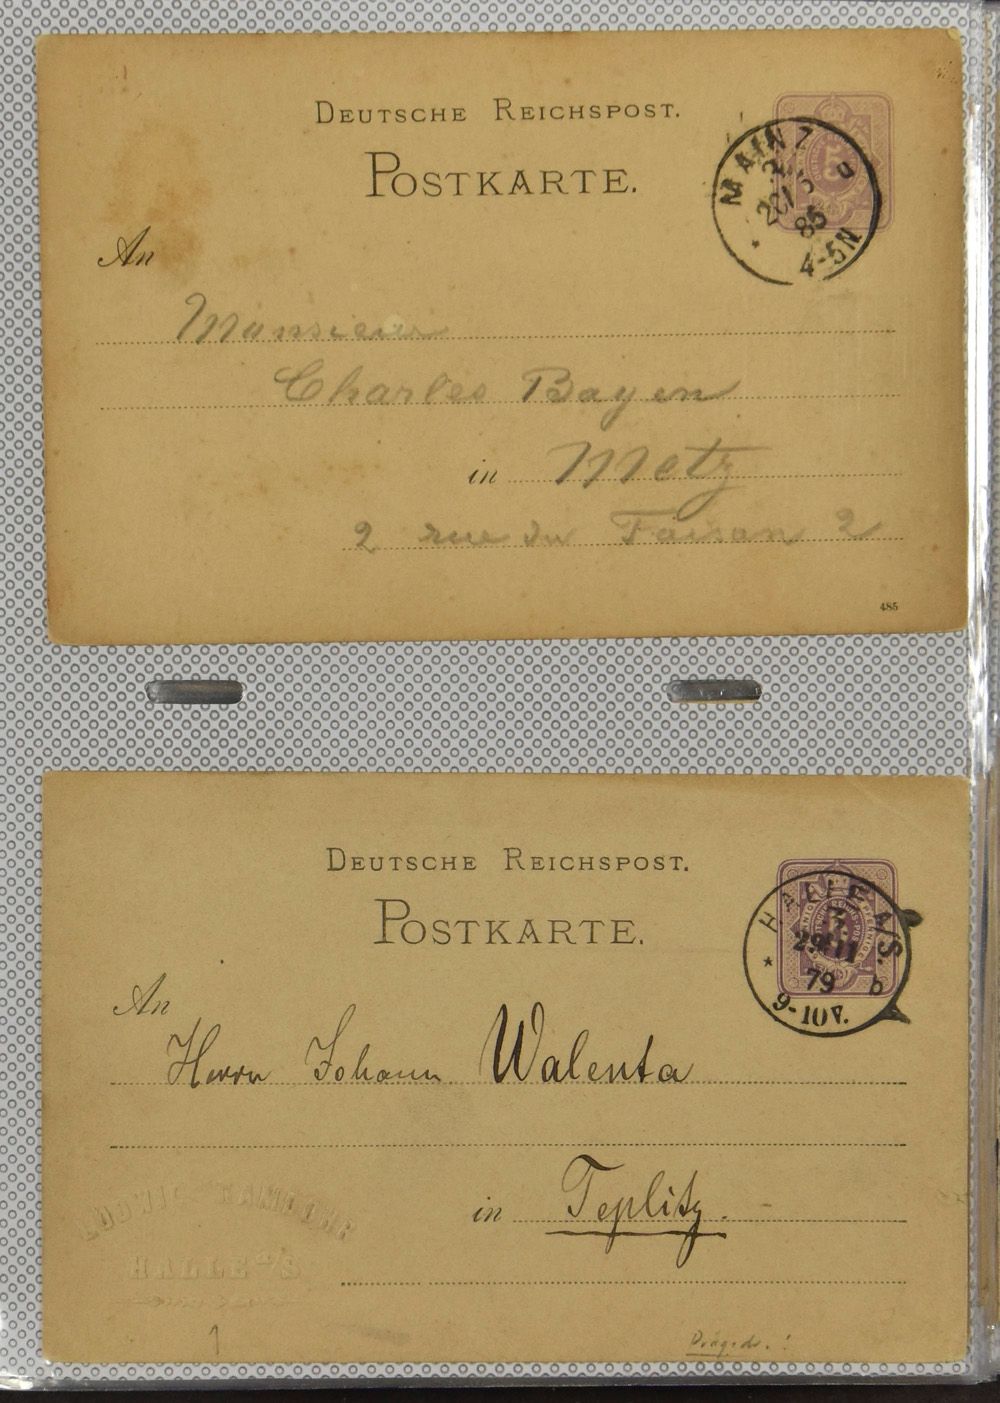 DEUTSCHE REICHSPOST.
POSTKARTE.
MAINZ
85
4-5N
An
Monsieur
Charles Bayen
in Metz
2 rue du Faisan 2
485
DEUTSCHE REICHSPOST.
POSTKARTE.
HALLE A/S.
29 11
79 b
9-10 V.
An
Herrn Johann Walenta
in Teplitz.
LUDWIG RAMDOHR
HALLE a/S